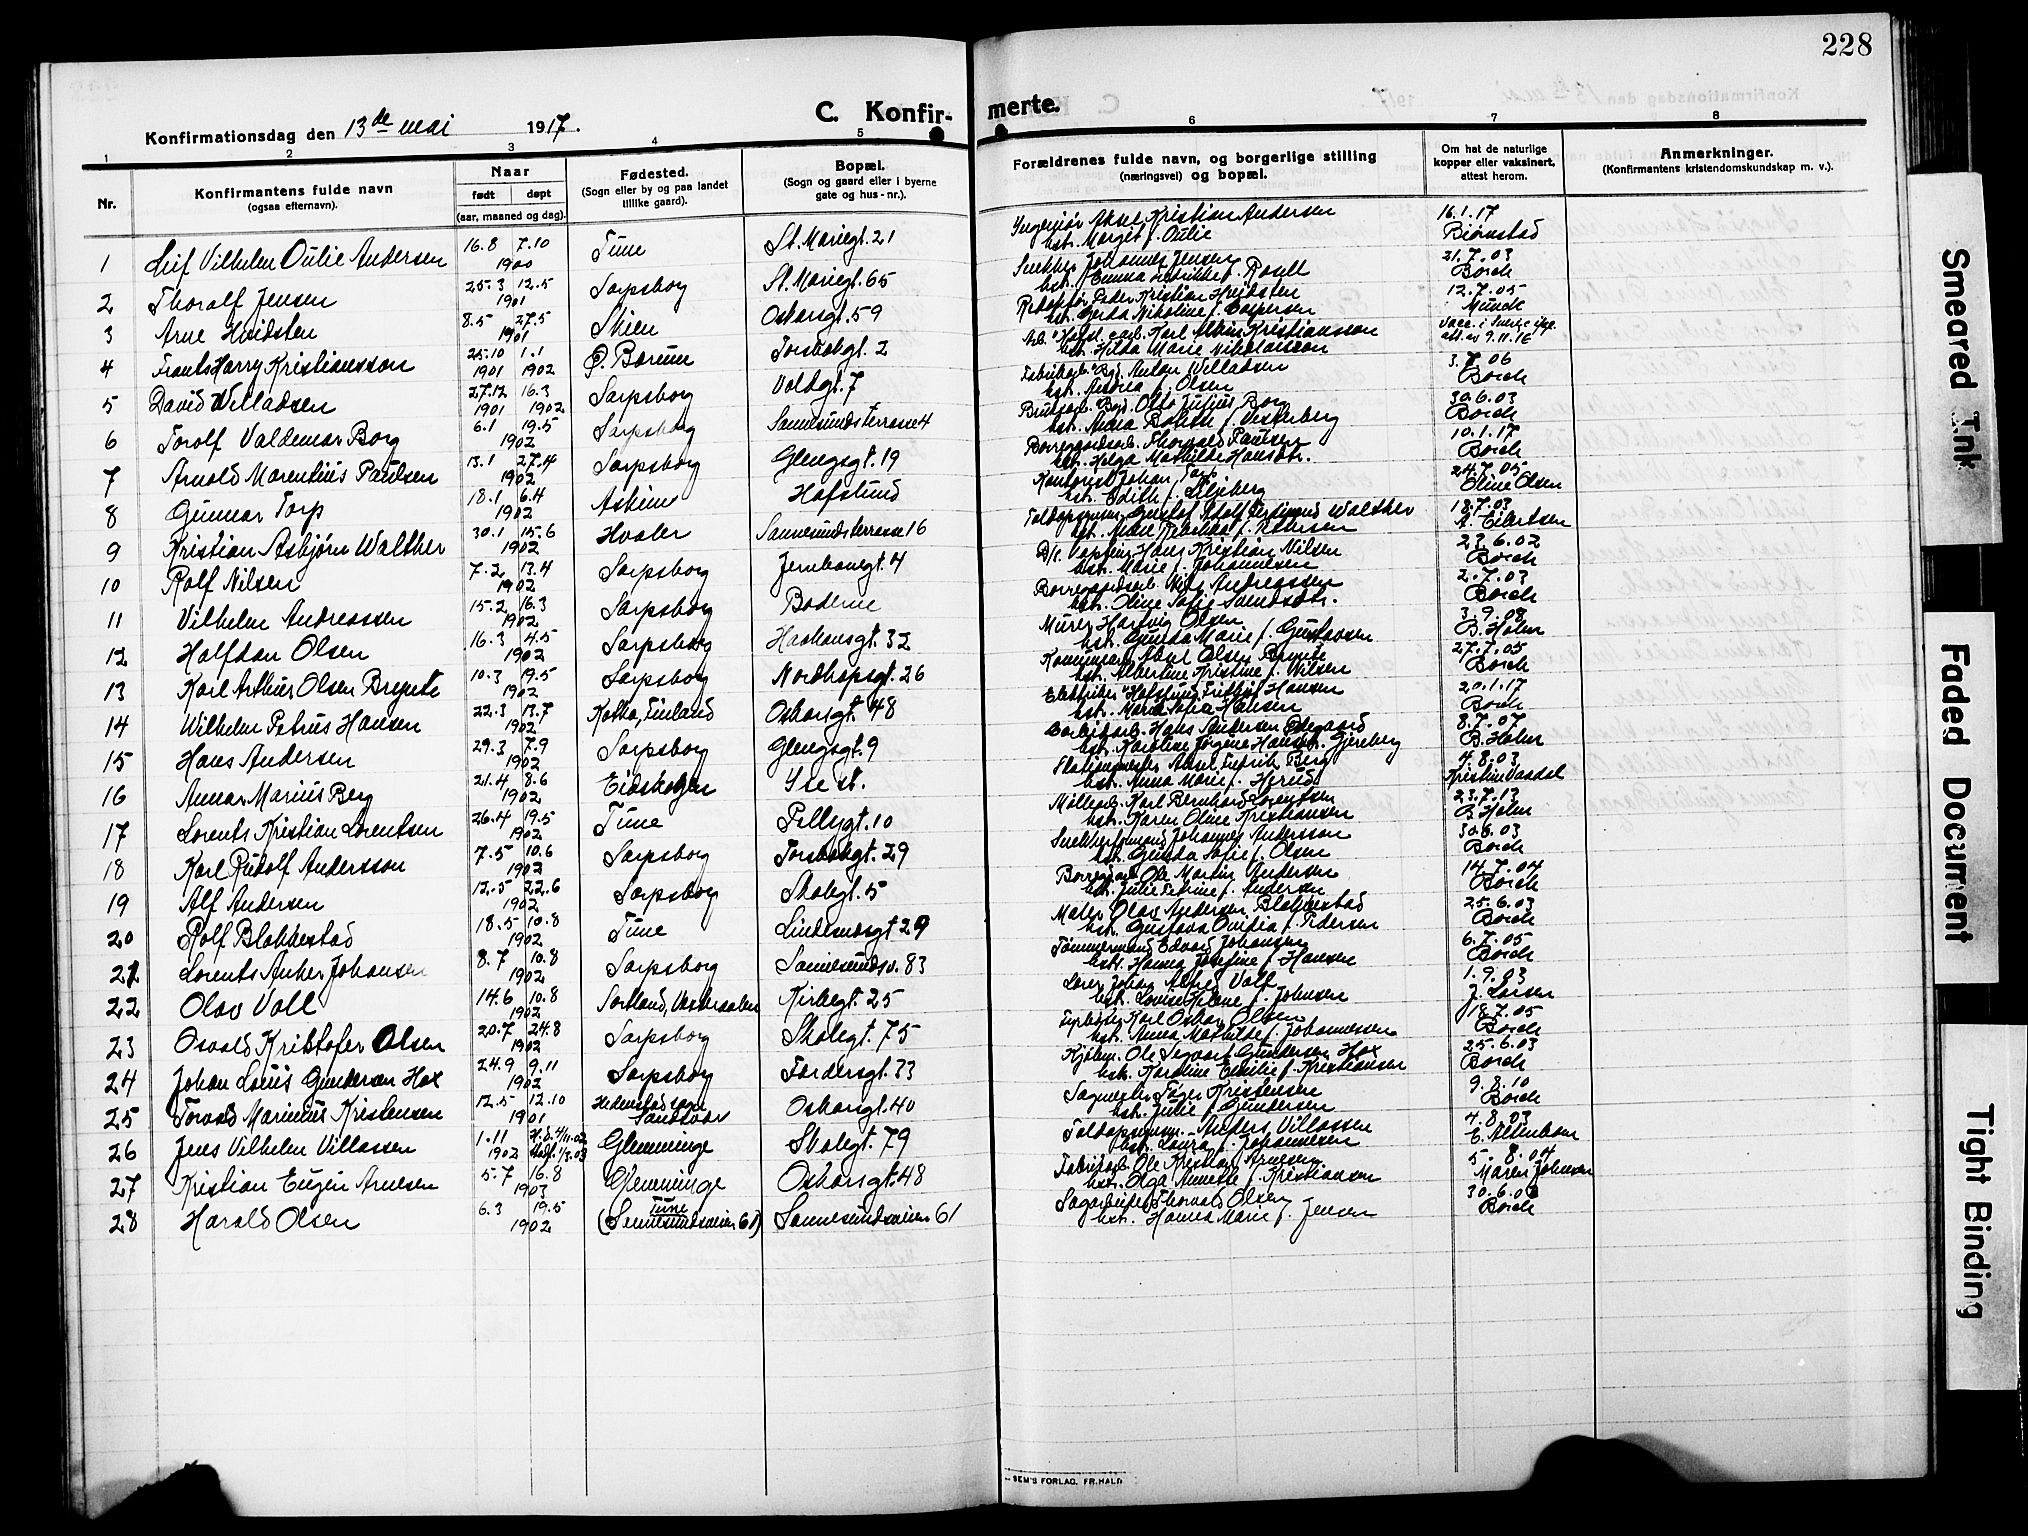 228
C. Konfir-
merte.
Konfirmationsdag den 13de mai 1917.
1 2 3 4 5 6 7 8
Nr.
Konfirmantens fulde navn
(ogsaa efternavn).
Naar
født døpt
(aar, maaned og dag).
Fødested.
(Sogn eller by og paa landet
tillike gaard).
Bopæl.
(Sogn og gaard eller i byerne
gate og hus-nr.).
Forældrenes fulde navn, og borgerlige stilling
(næringsvei) og bopæl.
Om hat de naturlige
kopper eller vaksinert,
attest herom.
Anmerkninger.
(Konfirmantens kristendomskundskap m. v.).
1 Leif Vilhelm Oulie Andersen 16.8 7.10 1900 Tune St. Mariegt. 21
Ingeniør Aksel Kristian Andersen 16.1.17
hst. Margit f. Oulie Biørnstad
2 Thoralf Jensen 25.3 12.5 1901 Sarpsborg St. Mariegt. 65
Snekker Johannes Jensen 21.7.03
hst. Emma f. Rosell Borch
3 Arne Hvidsten 8.5 27.5 1901 Skien Oskarsgt. 59
Redaktør Peder Kristian Hvidsten 12.7.05
hst. Gerda Nikoline f. Caspersen Munch
4 Frants Harry Kristiansson 25.10 1.1 1901 1902 Ø. Bærum Torsbekgt. 2
Karl Albin Kristiansson
hst. Hilda Marie Nikolaisson att. av 9.11.16
5 David Willadsen 27.12 16.3 1901 1902 Sarpsborg Voldgt. 7
Anton Willadsen 3.7.06
hst. Andrea f. Olsen Borch
6 Torolf Valdemar Borg 6.1 19.5 1902 Sarpsborg Sannesunds terrasse 4
Otto Julius Borg 30.6.03
hst. Anna f. Vesterberg Borch
7 Arnold Marentius Paulsen 13.1 27.4 1902 Sarpsborg Glengsgt. 19
Borregaardsarb. Thorvald Paulsen 10.1.17
hst. Helga Mathilde Hansdtr. Borch
8 Gunnar Torp 18.1 6.4 1902 Askim Hafslund
Kontorist Johan Torp 24.7.05
hst. Edith f. Liljeberg Oline Olsen
9 Kristian Asbjørn Walther 30.1 15.6 1902 Hvaler Sannesunds terrasse 16
Toldopsynsm. Gustaf Adolf Ferdinand Walther 18.7.03
hst. Marie f. Pettersen A. Eilertsen
10 Rolf Nilsen 7.2 13.4 1902 Sarpsborg Jernbanegt. 4
Hans Kristian Nilsen 23.6.02
hst. Marie f. Johannessen Borch
11 Vilhelm Andreassen 15.2 16.3 1902 Sarpsborg Boderne
Borregaardsarb. Nils Andreassen 2.7.03
hst. Oline Sofie Svendsdtr. Borch
12 Halfdan Olsen 16.3 4.5 1902 Sarpsborg Haakonsgt. 32
Murer Hartvig Olsen 3.9.08
hst. Gunda Marie f. Gustavsen B. Holm
13 Karl Arthur Olsen Brenne 10.3 19.5 1902 Sarpsborg Nordkapsgt. 26
Aksel Olsen 27.7.05
hst. Albertine Kristine f. Nilsen Borch
14 Wilhelm Petrus Hansen 22.3 13.7 1902 Kotka, Finland Oskarsgt. 48
Elektriker Hafslund Fritjof Hansen 20.1.17
hst. Maria Sofia Hansen Borch
15 Hans Andersen 29.3 7.9 1902 Sarpsborg Glengsgt. 9
Hans Andersen Ødegaard 8.7.07
hst. Karoline Jørgine Hansdtr. Gjerberg B. Holm
16 Annar Marius Berg 21.4 8.6 1902 Eidskogen Ise st.
Stationsmester Aksel Fredrik Berg 4.8.03
hst. Anna Marie f. Herud Kristine Vaadal
17 Lorents Kristian Lorentsen 26.4 19.5 1902 Tune Pellygt. 10
Møllearb. Karl Bernhard Lorentsen 23.7.13
hst. Karen Oline Kristiansen B. Holm
18 Karl Rudolf Andersson 7.5 10.6 1902 Sarpsborg Torsbekgt. 29
Snekkerformand Johannes Andersson 30.6.03
hst. Gunda Sofie f. Olsen Borch
19 Alf Andersen 12.5 22.6 1902 Sarpsborg Skolegt. 5
Borreg.arb. Ole Martin Andersen 14.7.04
hst. Julie Petrine f. Andersen Borch
20 Rolf Blakkestad 18.5 10.8 1902 Tune Lindesnesgt 29
Maler Olav Andersen Blakkestad 25.6.03
hst. Gustava Ovidia f. Pedersen Borch
21 Lorents Anker Johansen 8.7 10.8 1902 Sarpsborg Sannesundsv. 83
Tømmermand Edvard Johansen 6.7.05
hst. Hanna Josefine f. Hansen Borch
22 Olav Voll 14.6 10.8 1902 Sortland, Vesteraalen Kirkegt. 25
Lærer Johan Alfred Voll 1.9.03
hst. Lovise Helene f. Johnsen J. Larsen
23 Osvald Kristofer Olsen 20.7 24.8 1902 Sarpsborg Skolegt. 75
Fyrbøter Karl Oskar Olsen 18.7.05
hst. Anna Mathilde f. Johannessen Borch
24 Johan Louis Gundersen Hox 24.9 9.11 1902 Sarpsborg Færdersgt. 33
Kjølm. Ole Sigvart Gundersen Hox 25.6.03
hst. Karoline Emilie f. Kristiansen Borch
25 Torvald Marinius Kristensen 12.5 12.10 1901 Hedenstad sogn Sandsvær Oskarsgt. 40
Sagmester Tøger Kristensen 9.8.10
hst. Julie f. Gundersen Borch
26 Jens Vilhelm Villassen 1.11 1902 H.d. 4/11.02 Stadf. 1/3.03 Glemminge Skolegt. 79
Toldopsynsm. Anders Villassen 4.8.03
hst. Laura f. Johannesen E. Altenborn
27 Kristian Eugen Arnesen 5.7 16.8 1903 Glemminge Oskarsgt. 48
Fabrikarb. Ole Kristian Arnesen 5.8.04
hst. Olga Annette f. Kristiansen Maren Johnsen
28 Harald Olsen 6.3 19.5 1902 Tune (Sannesundsveien 61) Sannesundsveien 61
Sagarbeider Thorvald Olsen 30.6.03
hst. Hanna Marie f. Jensen Borch
SEM'S FORLAG, FR.HALD
Smeared Ink
Faded Document
Tight Binding